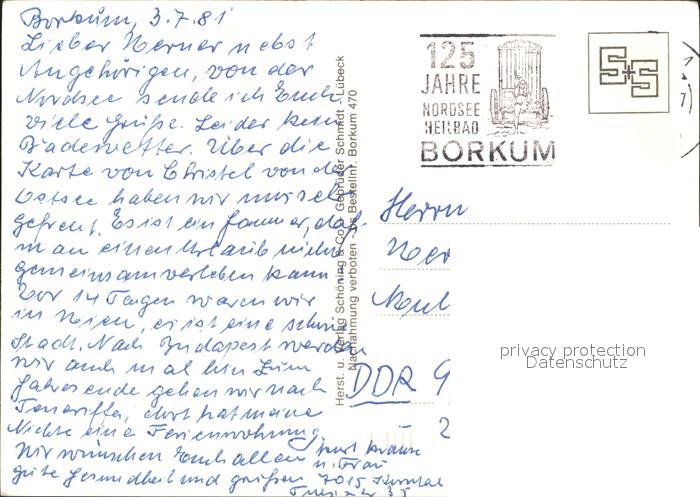 Borkum, 3.7.81
Lieber Werner nebst
Angehörigen, von der
Nordsee sende ich Euch
viele Grüße. Leider kein
Badewetter. Über die
Karte von Christel von der
Ostsee haben wir uns sehr
gefreut. Es ist ein Jammer, daß
man einen Urlaub nicht
gemeinsam verleben kann.
Vor 14 Tagen waren wir
in Wien, es ist eine schöne
Stadt. Nach Budapest werden
wir auch mal hin. Zum
Jahresende gehen wir nach
Teneriffa, dort hat meine
Nichte eine Ferienwohnung.
Wir wünschen Euch allen
gute Gesundheit und grüßen
Kurt
u. Frau
7015
35
Herst. u. Verlag Schöning & Co. Gebrüder Schmidt · Lübeck
Nachahmung verboten Bestellnr. Borkum 470
125
JAHRE
NORDSEE
HEILBAD
BORKUM
S+S
Herrn
Wer
DDR 9
2
privacy protection
Datenschutz